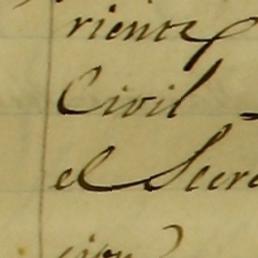 riente
Civil
el Secre